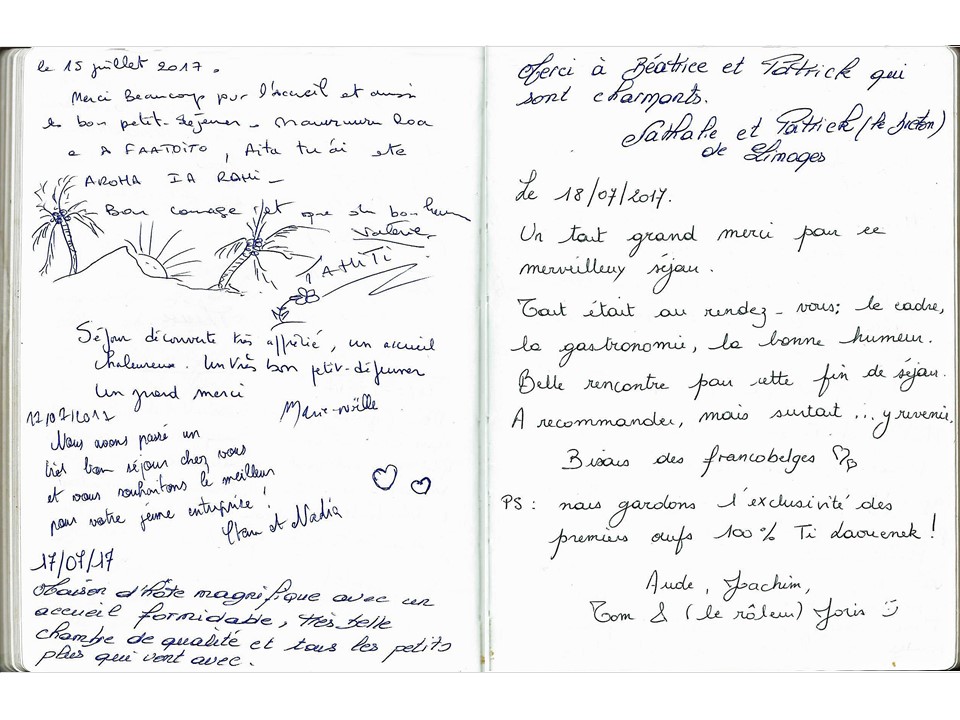 le 15 juillet 2017.
Merci Beaucoup pour l'accueil et aussi
le bon petit-déjeuner - Roa
e A FAATOITO, Aita tu ai ete
AROHA IA RAHI -
Bon courage et que du bonheur
Valérie,
TAHITI
Séjour découverte très apprécié, un accueil
chaleureux. Un très bon petit-déjeuner
Un grand merci
Marie-noëlle
17/07/2017
Nous avons passé un
très bon séjour chez vous
et vous souhaitons le meilleur
pour votre jeune entreprise !
et Nadia
17/07/17
Maison d'hôte magnifique avec un
accueil formidable, très belle
chambre de qualité et tous les petits
plus qui vont avec.
Merci à Béatrice et Patrick qui
sont charmants.
Nathalie et Patrick (le breton)
de Limoges
Le 18/07/2017.
Un tout grand merci pour ce
merveilleux séjour.
Tout était au rendez-vous; le cadre,
la gastronomie, la bonne humeur.
Belle rencontre pour cette fin de séjour.
A recommander, mais surtout ... y revenir.
Bisous des francobelges
PS : nous gardons l'exclusivité des
premiers oufs 100% Ti daouenek !
Aude, Joachim,
Tom & (le râleur) Joris